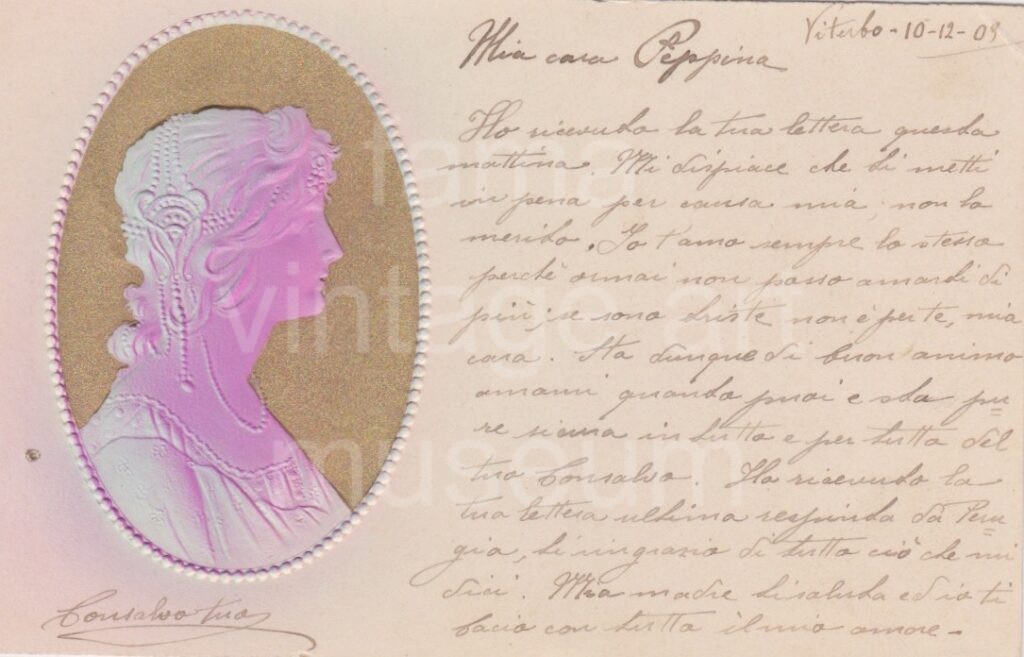 Viterbo - 10-12-09
Mia cara Peppina
Ho ricevuto la tua lettera questa
mattina. Mi dispiace che ti metti
in pena per causa mia, non lo
merito. Io t'amo sempre lo stesso
perchè ormai non posso amarti di
più; se sono triste non è per te, mia
cara. Sta dunque di buon animo
amami quanto puoi e sta pu-
re sicura in tutto e per tutto del
tuo Consalvo. Ho ricevuto la
tua lettera ultima respinta da Peru-
gia, ti ringrazio di tutto ciò che mi
dici. Mia madre ti saluta ed io ti
bacio con tutto il mio amore -
Consalvo tuo
fama
vintage art
museum